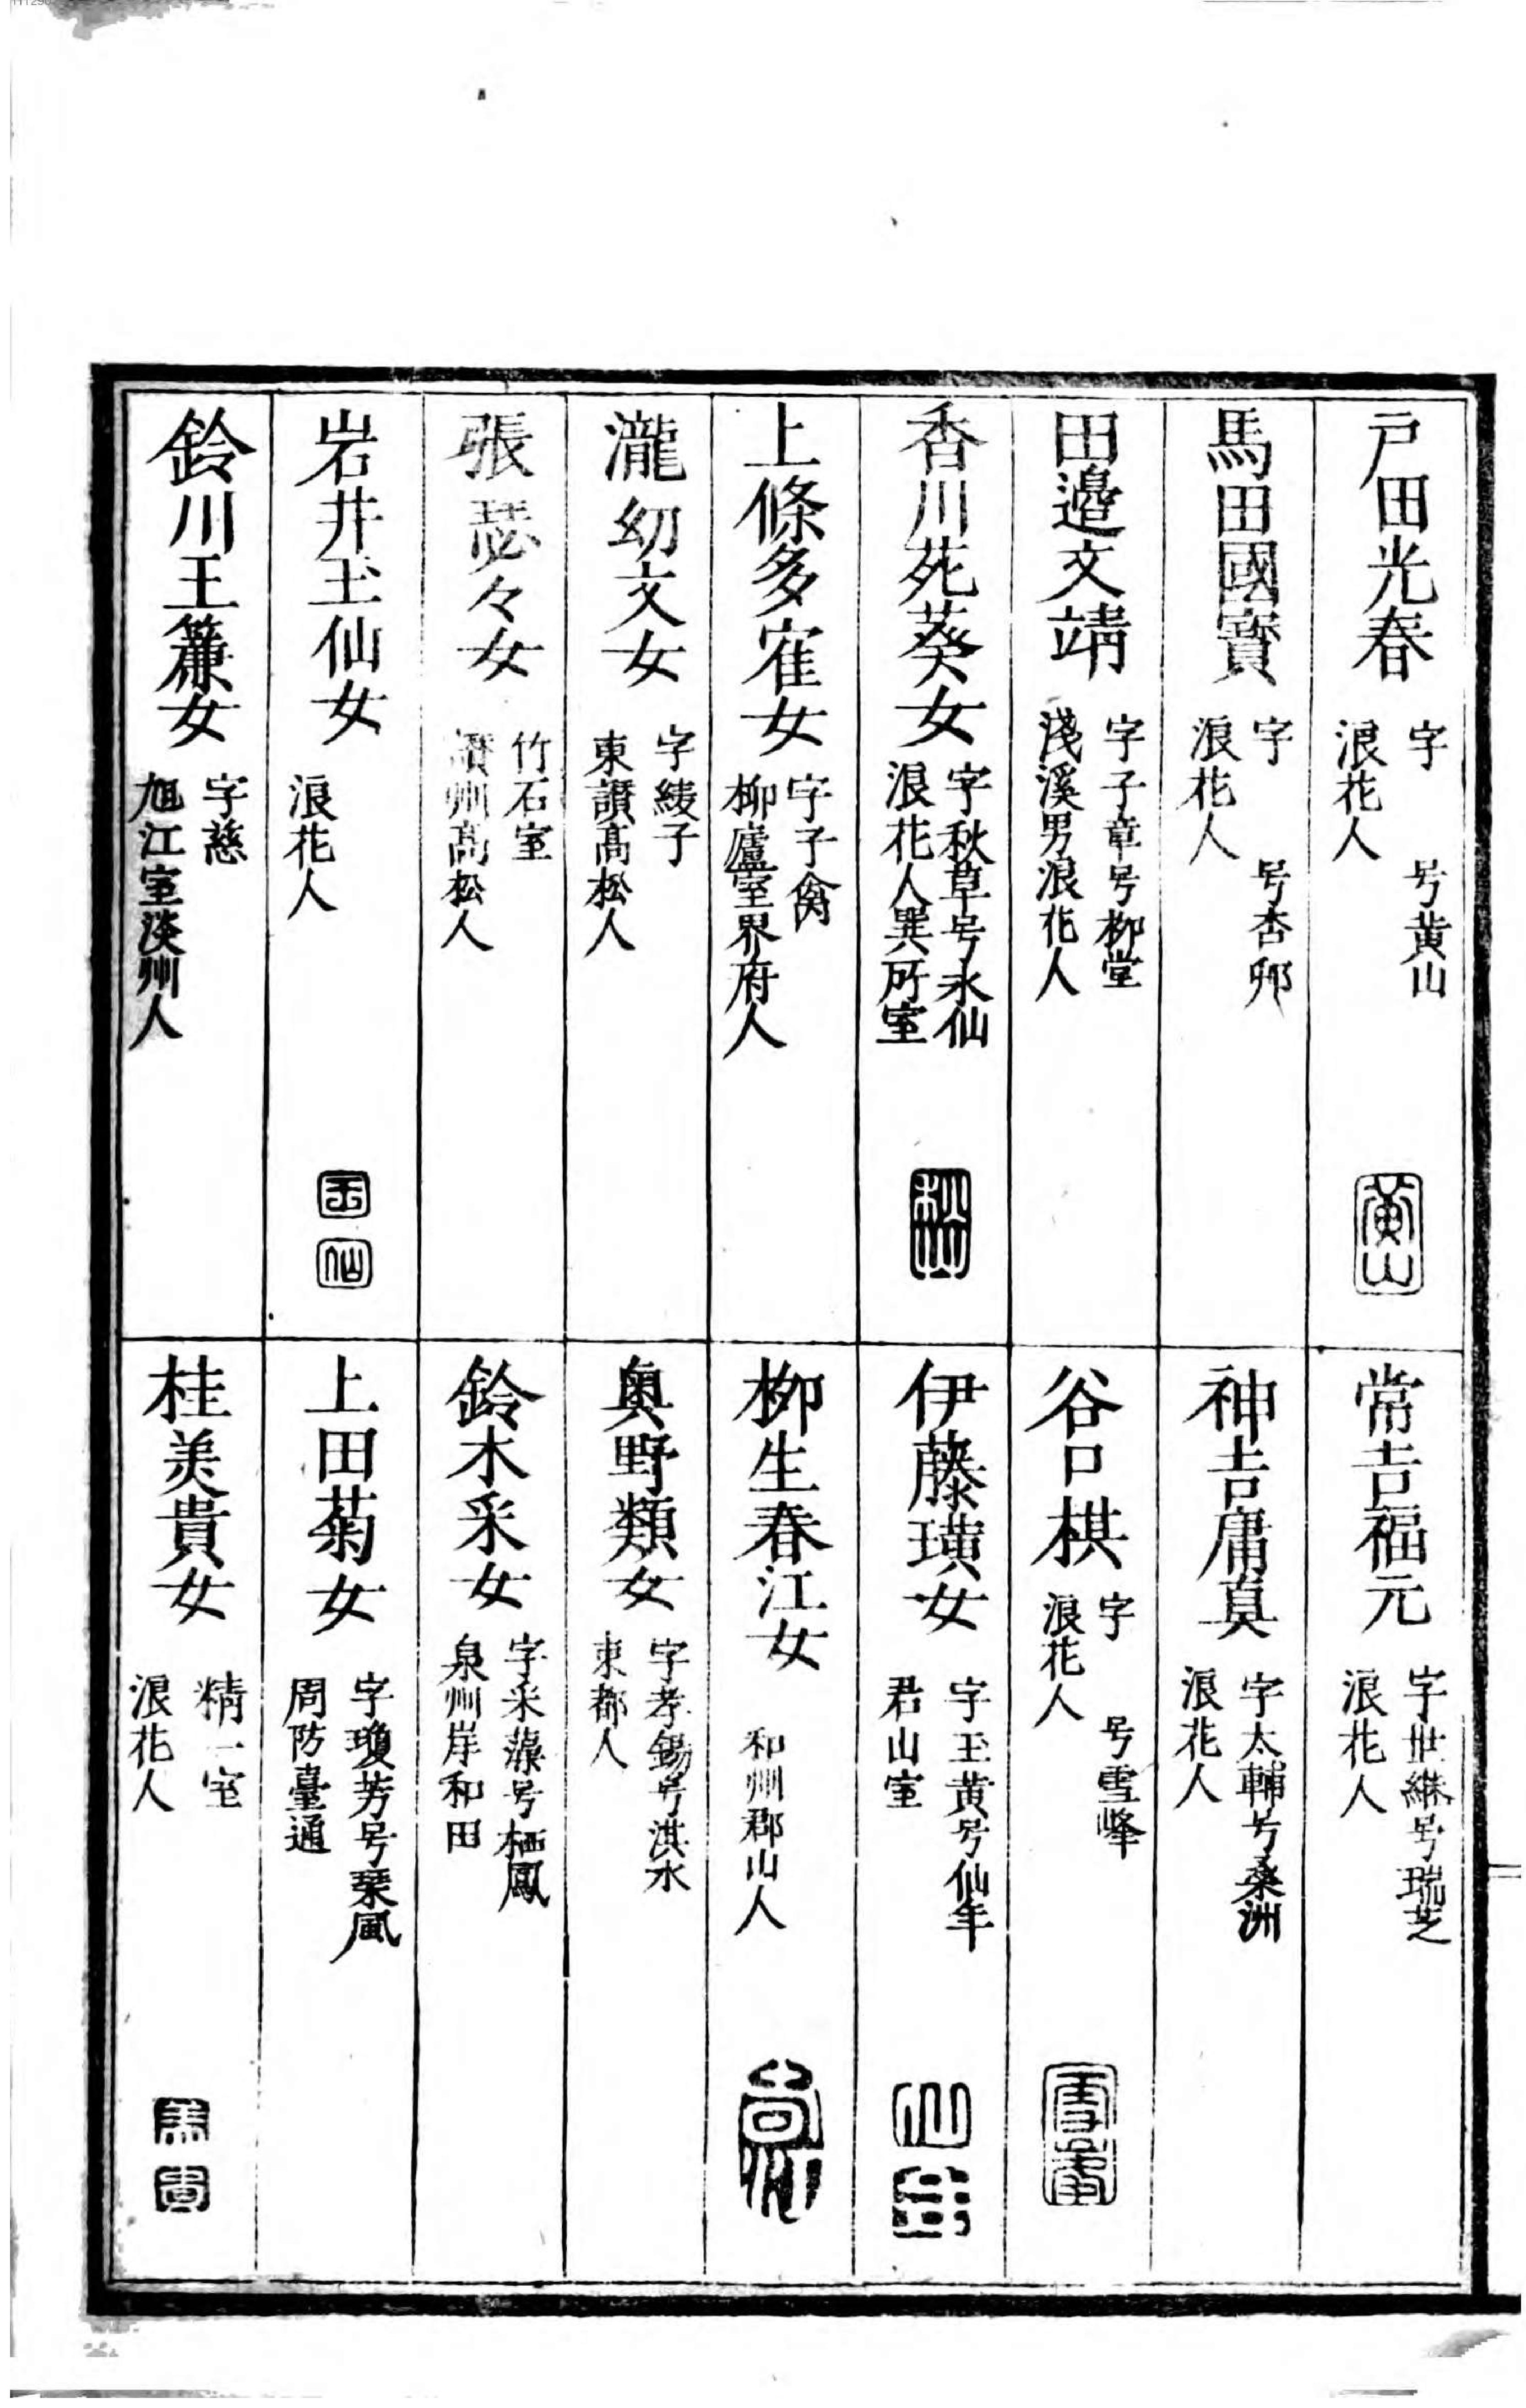 戸田光春
字　号黄山
浪花人
黄山
馬田國寳
字　号杏邨
浪花人
田邉文靖
字子章号柳堂
淺溪男浪花人
香川苑葵女
字秋草号永仙
浪花人巽所室
上條多隺女
字子禽
柳廬室界府人
瀧幼文女
字綾子
東讃髙松人
張瑟々女
竹石室
讃州髙松人
岩井玉仙女
浪花人
玉
仙
鈴川玉簾女
字慈
旭江室淡州人
常吉福元
字世継号瑞芝
浪花人
神吉庸真
字太輔号桑洲
浪花人
谷口棋
字　号雪峰
浪花人
伊藤璜女
字玉黄号仙年
君山室
仙
柳生春江女
和州郡山人
奥野類女
字孝錫号淇水
東都人
鈴木采女
字采藻号栖鳳
泉州岸和田
上田菊女
字瓊芳号琹風
周防臺通
桂美貴女
精一室
浪花人
美
貴